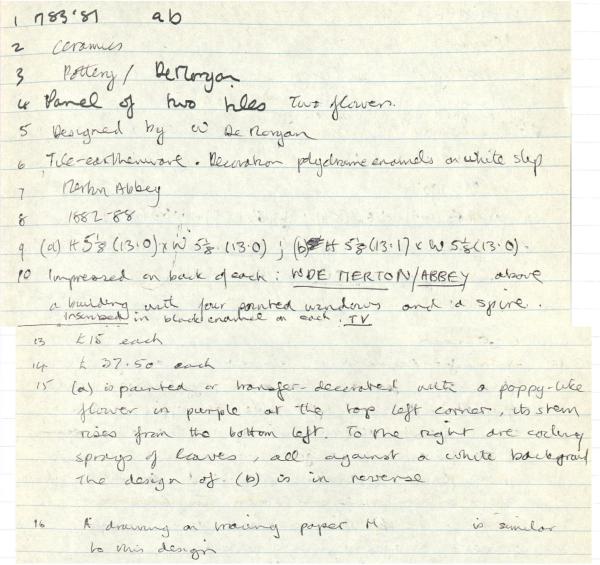 1 783'81 ab
2 Ceramics
3 Pottery / De Morgan
4 Panel of two tiles Two flowers.
5 Designed by W De Morgan
6 Tile-earthenware. Decoration polychrome enamels on white slip
7 Merton Abbey
8 1882-88
9 (a) H 5⅛ (13.0) x W 5⅛ (13.0) ; (b) H 5⅛ (13.1) x W 5⅛ (13.0).
10 Impressed on back of each: W DE MERTON/ABBEY above
a building with four pointed windows and a spire.
Inscribed in black enamel on each. JV
13 £15 each
14 £ 37.50 each
15 (a) is painted or transfer-decorated with a poppy-like
flower in purple at the top left corner, its stem
rises from the bottom left. To the right are coiling
sprays of leaves, all against a white background
The design of (b) is in reverse
16 A drawing on tracing paper M is similar
to this design